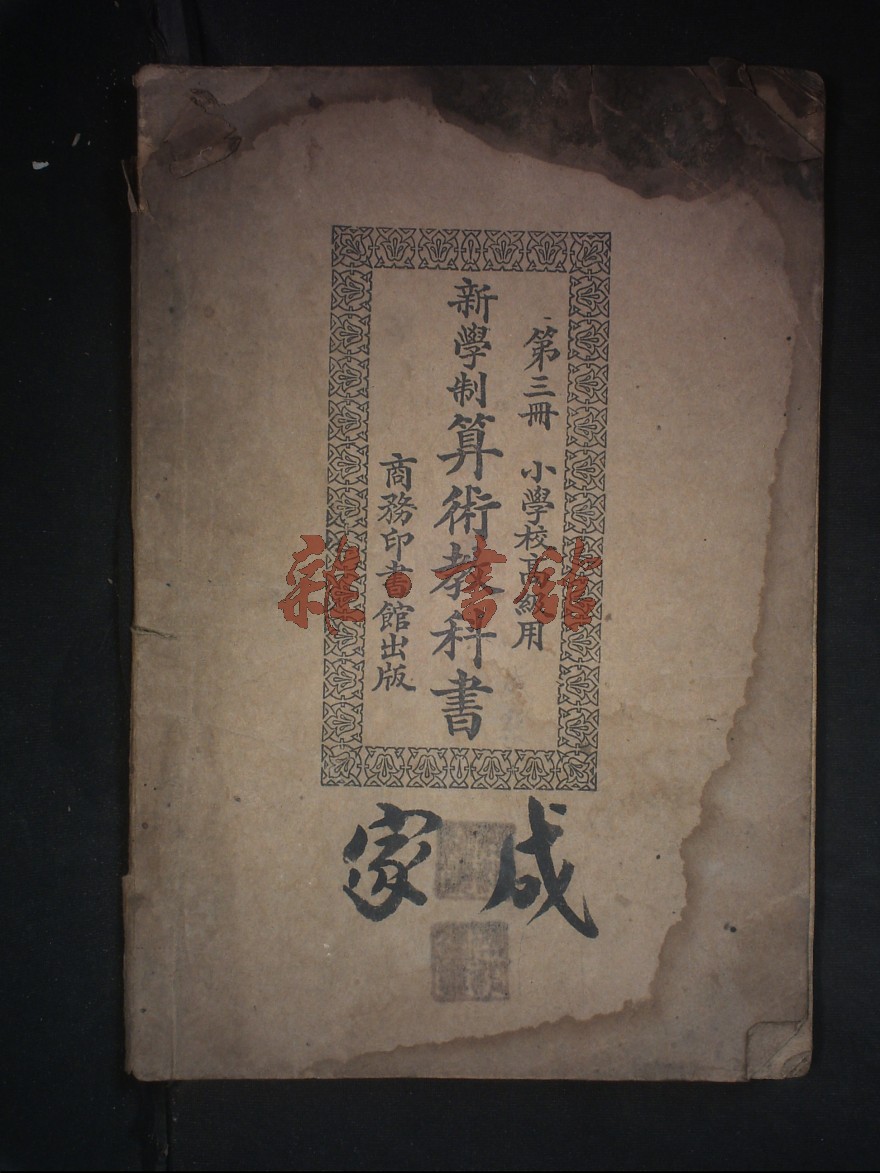 第三冊 小學校高級用
新學制算術教科書
商務印書館出版
成家
雜·書館